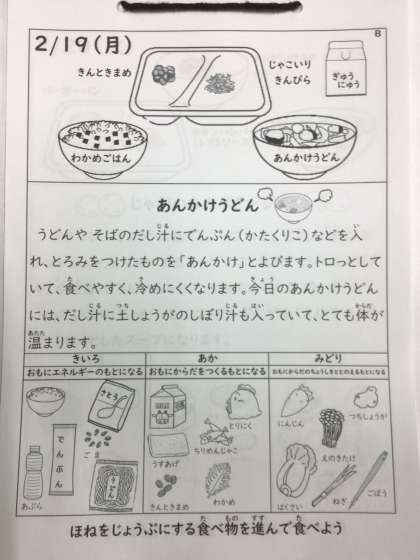 8
2/19(月)
きんときまめ
じゃこいり
きんぴら
ぎゅう
にゅう
わかめごはん
あんかけうどん
あんかけうどん
うどんや そばのだし汁にでんぷん(かたくりこ)などを入
れ、とろみをつけたものを「あんかけ」とよびます。トロっとして
いて、食べやすく、冷めにくくなります。今日のあんかけうどん
には、だし汁に土しょうがのしぼり汁も入っていて、とても体が
温まります。
きいろ
おもにエネルギーのもとになる
さとう
ごま
でんぷん
うどん
あぶら
あか
おもにからだをつくるもとになる
とりにく
ちりめんじゃこ
うすあげ
きんときまめ
わかめ
みどり
おもにからだのちょうしをととのえるもとになる
にんじん
つちしょうが
えのきたけ
はくさい
ねぎ
ごぼう
ほねをじょうぶにする食べ物を進んで食べよう